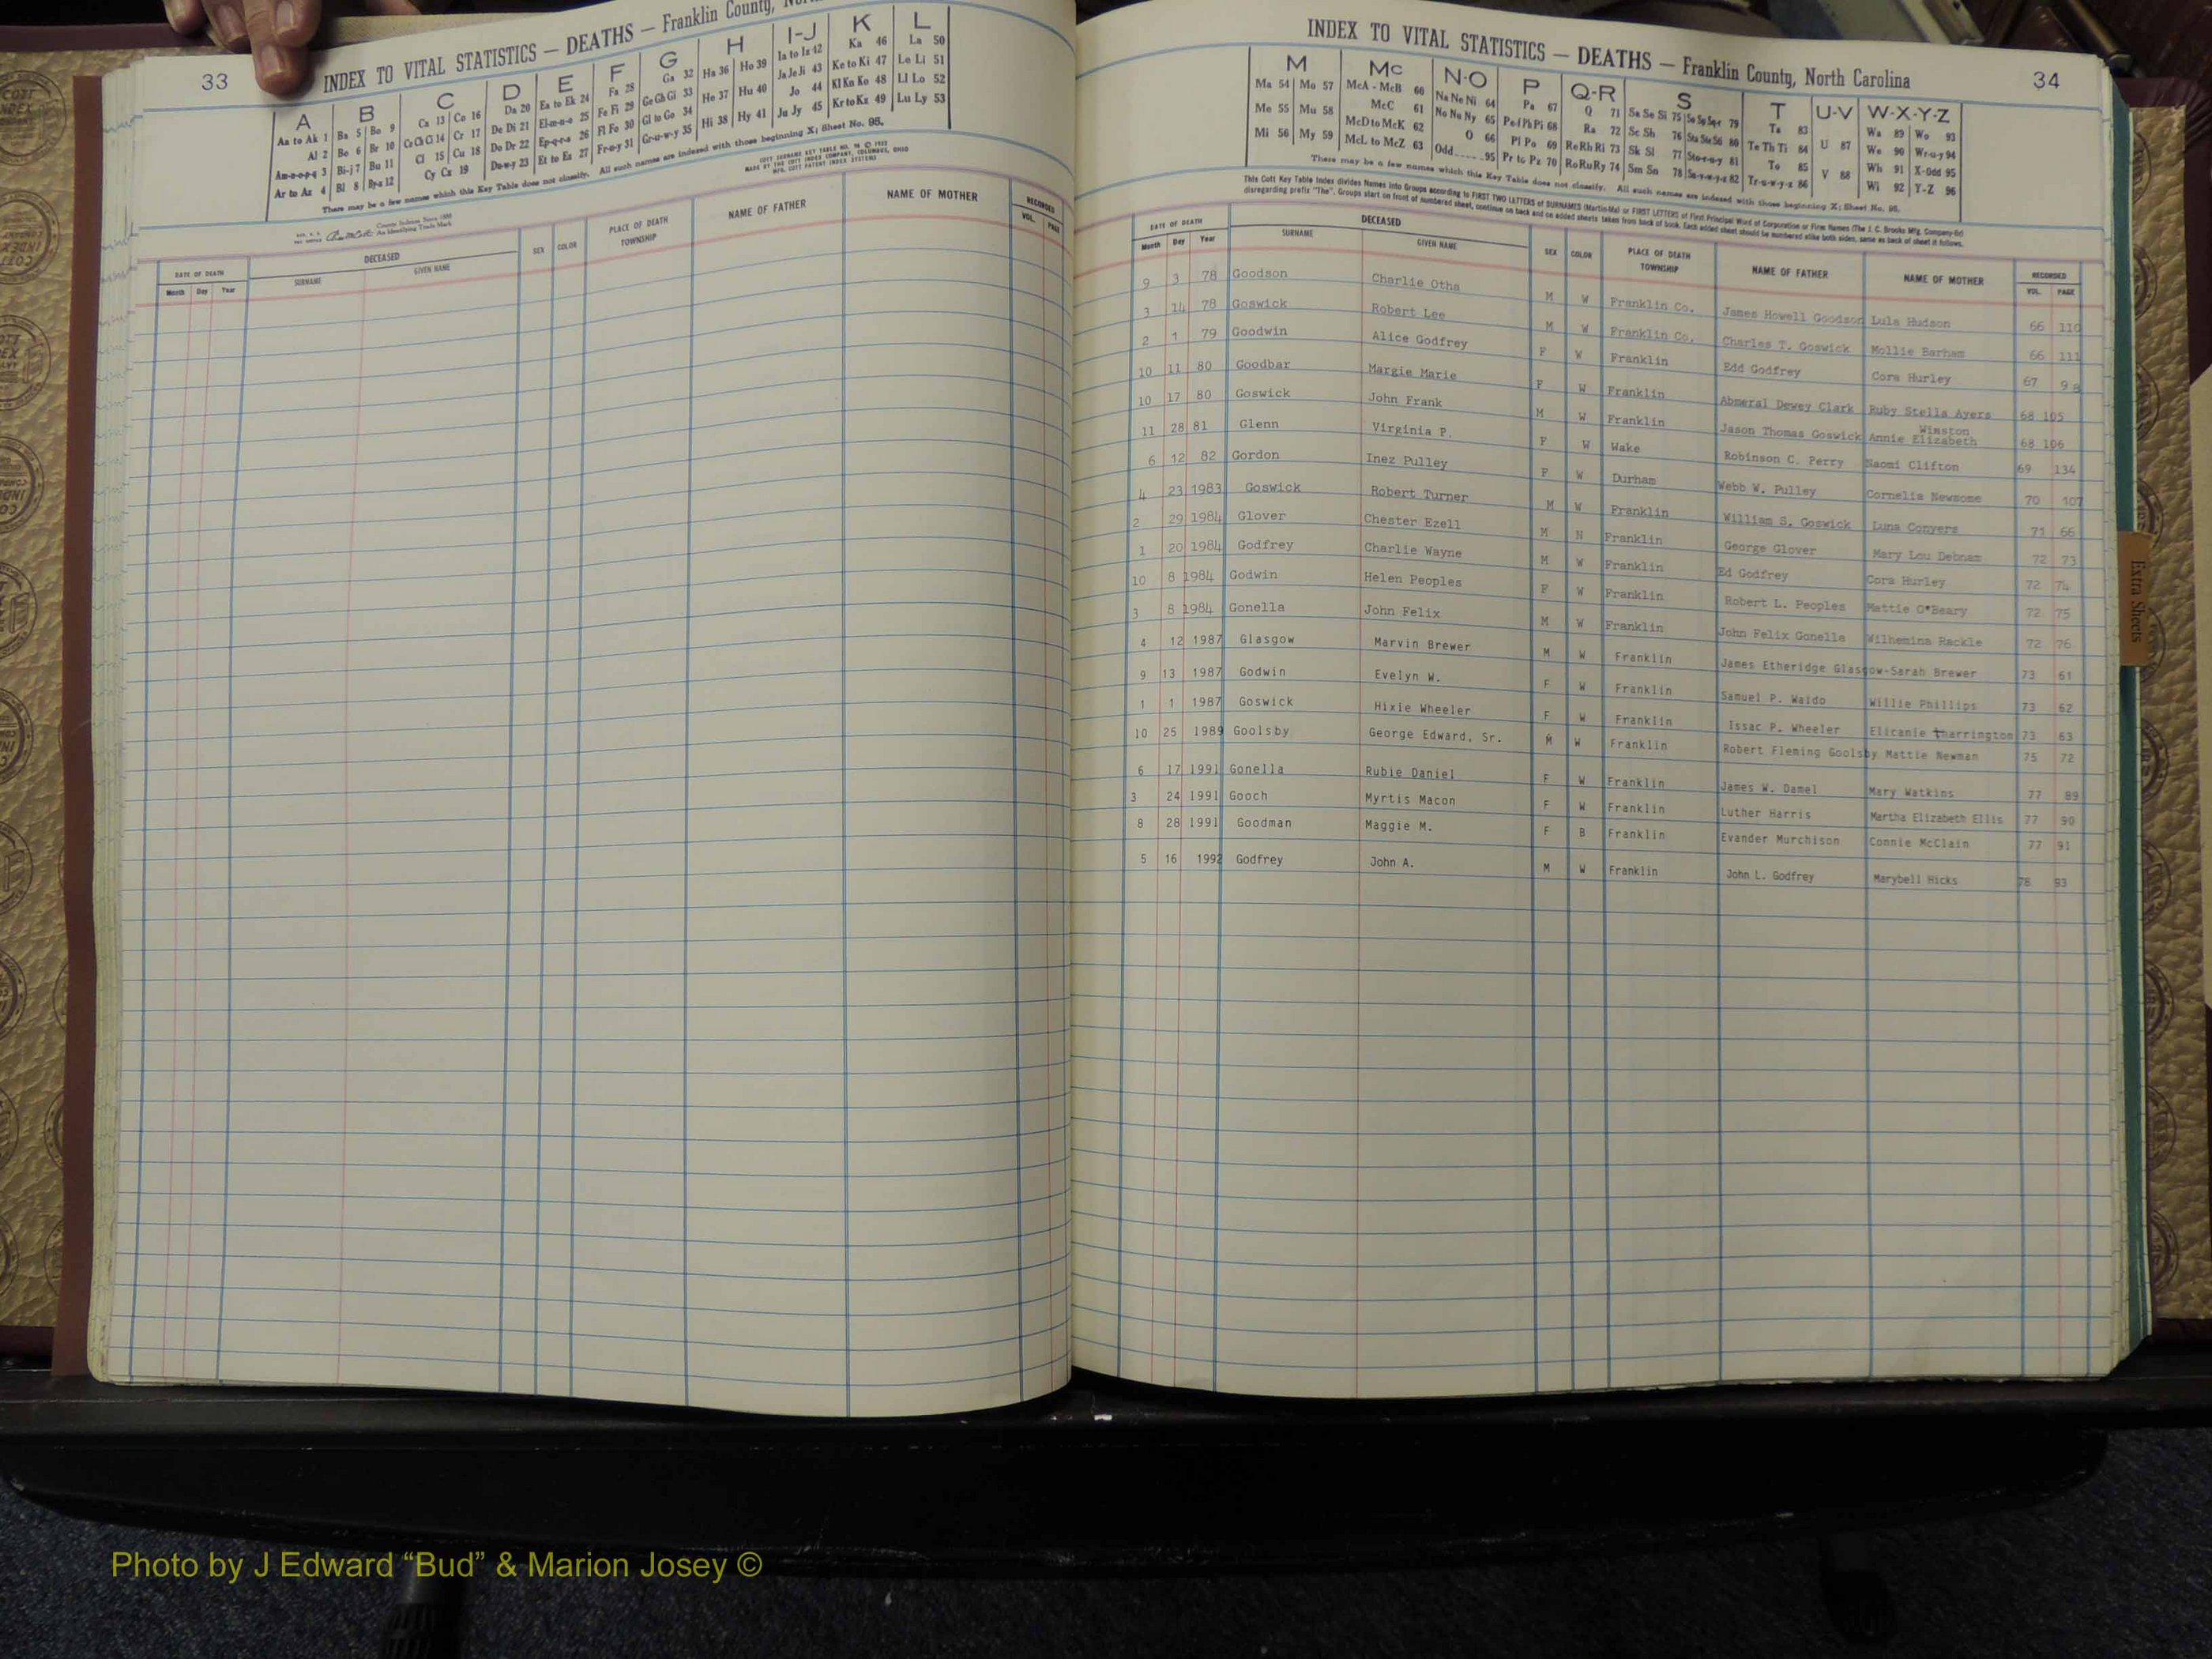 33
INDEX TO VITAL STATISTICS — DEATHS — Franklin County,
A B C D E F G H I-J K L
Aa to Ak 1 Ba 5 Bo 9 Ca 13 Co 16 Da 20 Ea to Ek 24 Fa 28 Ga 32 Ha 36 Ho 39 Ia to Iz 42 Ka 46 La 50
Al 2 Be 6 Br 10 Ce Ch Ci 14 Cr 17 De Di 21 El-m-n-o 25 Fe Fi 29 Ge Gh Gi 33 He 37 Hu 40 Ja Je Ji 43 Ke to Ki 47 Le Li 51
Am-n-o-p-q 3 Bi-j 7 Bu 11 Cl 15 Cu 18 Do Dr 22 Ep-q-r-s 26 Fl Fo 30 Gl to Go 34 Hi 38 Hy 41 Jo 44 Kl Kn Ko 48 Ll Lo 52
Ar to Az 4 Bl 8 By-z 12 Cy Cz 19 Du-w-y 23 Et to Ez 27 Fr-u-y 31 Gr-u-w-y 35 Ju Jy 45 Kr to Kz 49 Lu Ly 53
There may be a few names which this Key Table does not classify. All such names are indexed with those beginning X; Sheet No. 95.
DATE OF DEATH DECEASED SEX COLOR PLACE OF DEATH TOWNSHIP NAME OF FATHER NAME OF MOTHER RECORDED
Month Day Year SURNAME GIVEN NAME VOL. PAGE
INDEX TO VITAL STATISTICS — DEATHS — Franklin County, North Carolina
34
M Mc N-O P Q-R S T U-V W-X-Y-Z
Ma 54 Mo 57 McA - McB 60 Na Ne Ni 64 Pa 67 Q 71 Sa Se Si 75 So Sp Sq-r 79 Ta 83 U 87 Wa 89 Wo 93
Me 55 Mu 58 McC 61 No Nu Ny 65 Pe-f Ph Pi 68 Ra 72 Sc Sh 76 Sta Ste Sti 80 Te Th Ti 84 V 88 We 90 Wr-u-y 94
Mi 56 My 59 McD to McK 62 O 66 Pl Po 69 Re Rh Ri 73 Sk Sl 77 Sto-r-u-y 81 To 85 Wh 91 X-Odd 95
McL to McZ 63 Odd 95 Pr to Pz 70 Ro Ru Ry 74 Sm Sn 78 Su-v-w-y-z 82 Tr-u-w-y-z 86 Wi 92 Y-Z 96
There may be a few names which this Key Table does not classify. All such names are indexed with those beginning X; Sheet No. 95.
This Cott Key Table Index divides Names into Groups according to FIRST TWO LETTERS of SURNAMES (Martin-Ma) or FIRST LETTERS of First Principal Word of Corporation or Firm Names (The J. C. Brooks Mfg. Company-Br)
disregarding prefix "The". Groups start on front of numbered sheet, continue on back and on added sheets taken from back of book. Each added sheet should be numbered alike both sides, same as back of sheet it follows.
DATE OF DEATH DECEASED SEX COLOR PLACE OF DEATH TOWNSHIP NAME OF FATHER NAME OF MOTHER RECORDED
Month Day Year SURNAME GIVEN NAME VOL. PAGE
9 3 78 Goodson Charlie Otha M W Franklin Co. James Howell Goodson Lula Hudson 66 110
3 14 78 Goswick Robert Lee M W Franklin Co. Charles T. Goswick Mollie Barham 66 111
2 1 79 Goodwin Alice Godfrey F W Franklin Edd Godfrey Cora Hurley 67 98
10 11 80 Goodbar Margie Marie F W Franklin Abmeral Dewey Clark Ruby Stella Ayers 68 105
10 17 80 Goswick John Frank M W Franklin Jason Thomas Goswick Annie Elizabeth Winston 68 106
11 28 81 Glenn Virginia P. F W Wake Robinson C. Perry Naomi Clifton 69 134
6 12 82 Gordon Inez Pulley F W Durham Webb W. Pulley Cornelia Newsome 70 107
4 23 1983 Goswick Robert Turner M W Franklin William S. Goswick Luna Conyers 71 66
2 29 1984 Glover Chester Ezell M N Franklin George Glover Mary Lou Debnam 72 73
1 20 1984 Godfrey Charlie Wayne M W Franklin Ed Godfrey Cora Hurley 72 74
10 8 1984 Godwin Helen Peoples F W Franklin Robert L. Peoples Mattie O'Beary 72 75
3 8 1984 Gonella John Felix M W Franklin John Felix Gonella Wilhemina Rackle 72 76
4 12 1987 Glasgow Marvin Brewer M W Franklin James Etheridge Glasgow-Sarah Brewer 73 61
9 13 1987 Godwin Evelyn W. F W Franklin Samuel P. Waldo Willie Phillips 73 62
1 1 1987 Goswick Hixie Wheeler F W Franklin Issac P. Wheeler Elicanie tharrington 73 63
10 25 1989 Goolsby George Edward, Sr. M W Franklin Robert Fleming Goolsby Mattie Newman 75 72
6 17 1991 Gonella Rubie Daniel F W Franklin James W. Damel Mary Watkins 77 89
3 24 1991 Gooch Myrtis Macon F W Franklin Luther Harris Martha Elizabeth Ellis 77 90
8 28 1991 Goodman Maggie M. F B Franklin Evander Murchison Connie McClain 77 91
5 16 1992 Godfrey John A. M W Franklin John L. Godfrey Marybell Hicks 78 93
Extra Sheets
Photo by J Edward “Bud” & Marion Josey ©